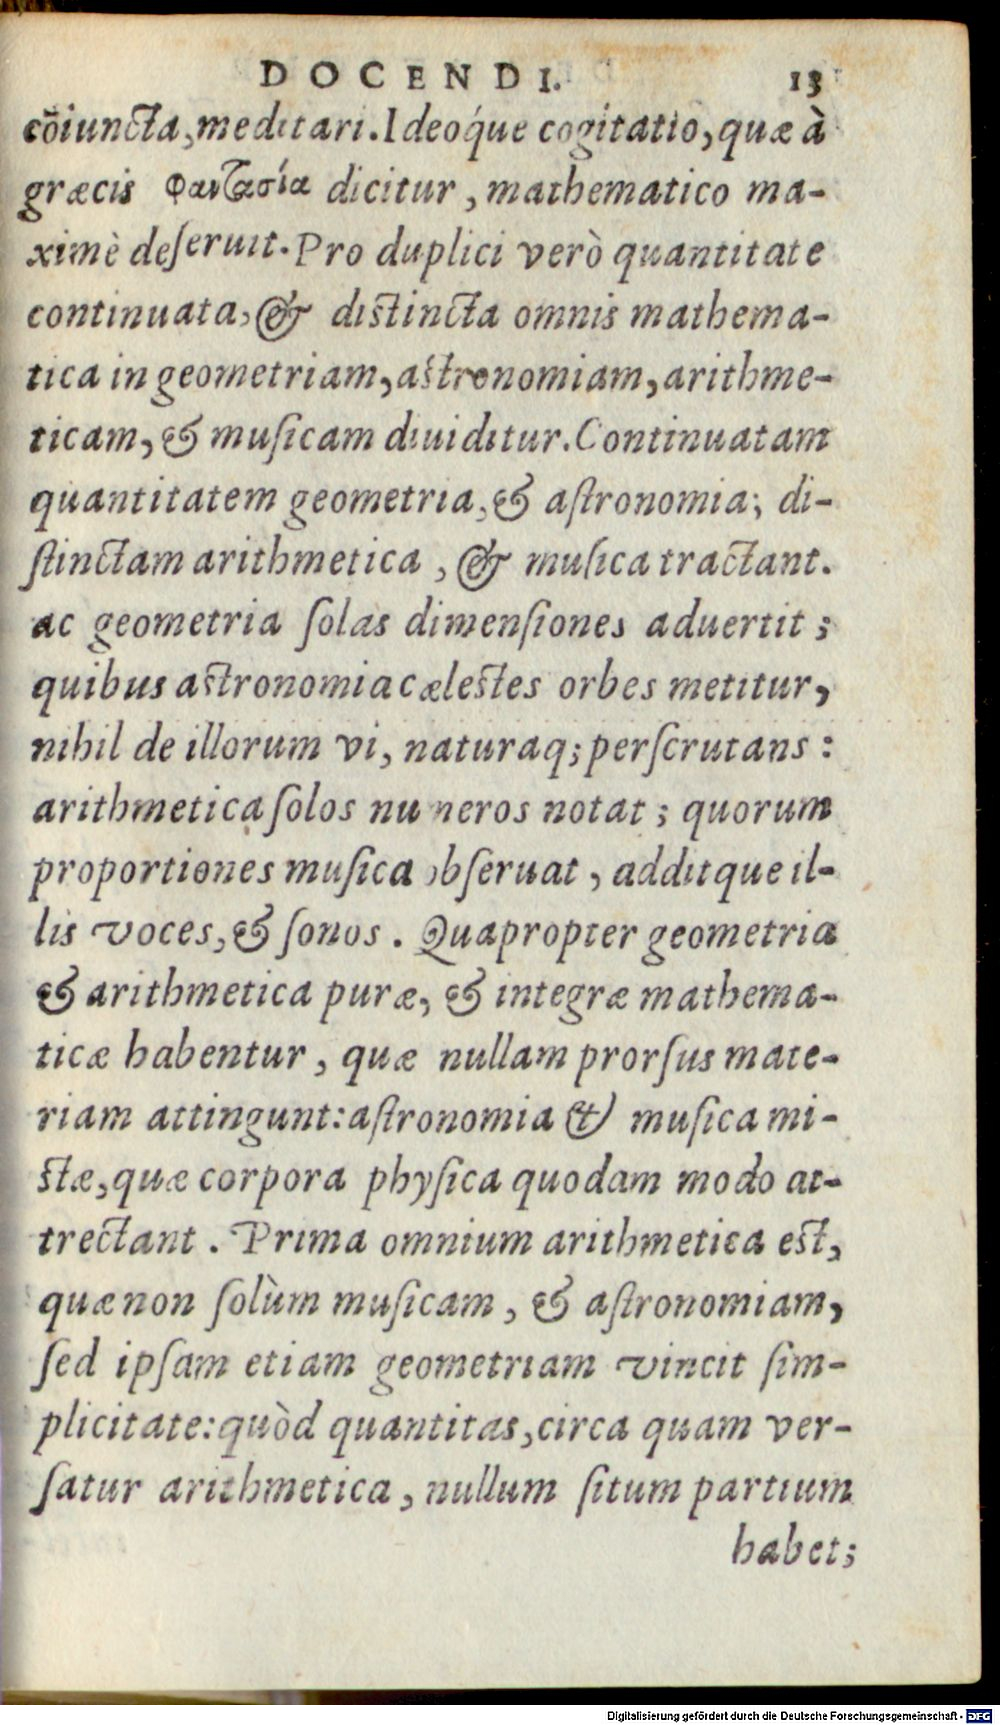 DOCENDI. 13
cōiuncta, meditari. Ideoq́ue cogitatio, quæ à
græcis φαντασία dicitur, mathematico ma-
ximè deſeruit. Pro duplici verò quantitate
continuata, & distincta omnis mathema-
tica in geometriam, astronomiam, arithme-
ticam, & muſicam diuiditur. Continuatam
quantitatem geometria, & aſtronomia; di-
ſtinctam arithmetica, & muſica tractant.
ac geometria ſolas dimenſiones aduertit;
quibus astronomia cælestes orbes metitur,
nihil de illorum vi, naturaq; perſcrutans:
arithmetica ſolos numeros notat; quorum
proportiones muſica obſeruat, additque il-
lis voces, & ſonos. Quapropter geometria
& arithmetica puræ, & integræ mathema-
ticæ habentur, quæ nullam prorſus mate-
riam attingunt: aſtronomia & muſica mi-
stæ, quæ corpora phyſica quodam modo at-
trectant. Prima omnium arithmetica est,
quæ non ſolùm muſicam, & aſtronomiam,
ſed ipſam etiam geometriam vincit ſim-
plicitate: quòd quantitas, circa quam ver-
ſatur arithmetica, nullum ſitum partium
habet;
Digitalisierung gefördert durch die Deutsche Forschungsgemeinschaft - DFG